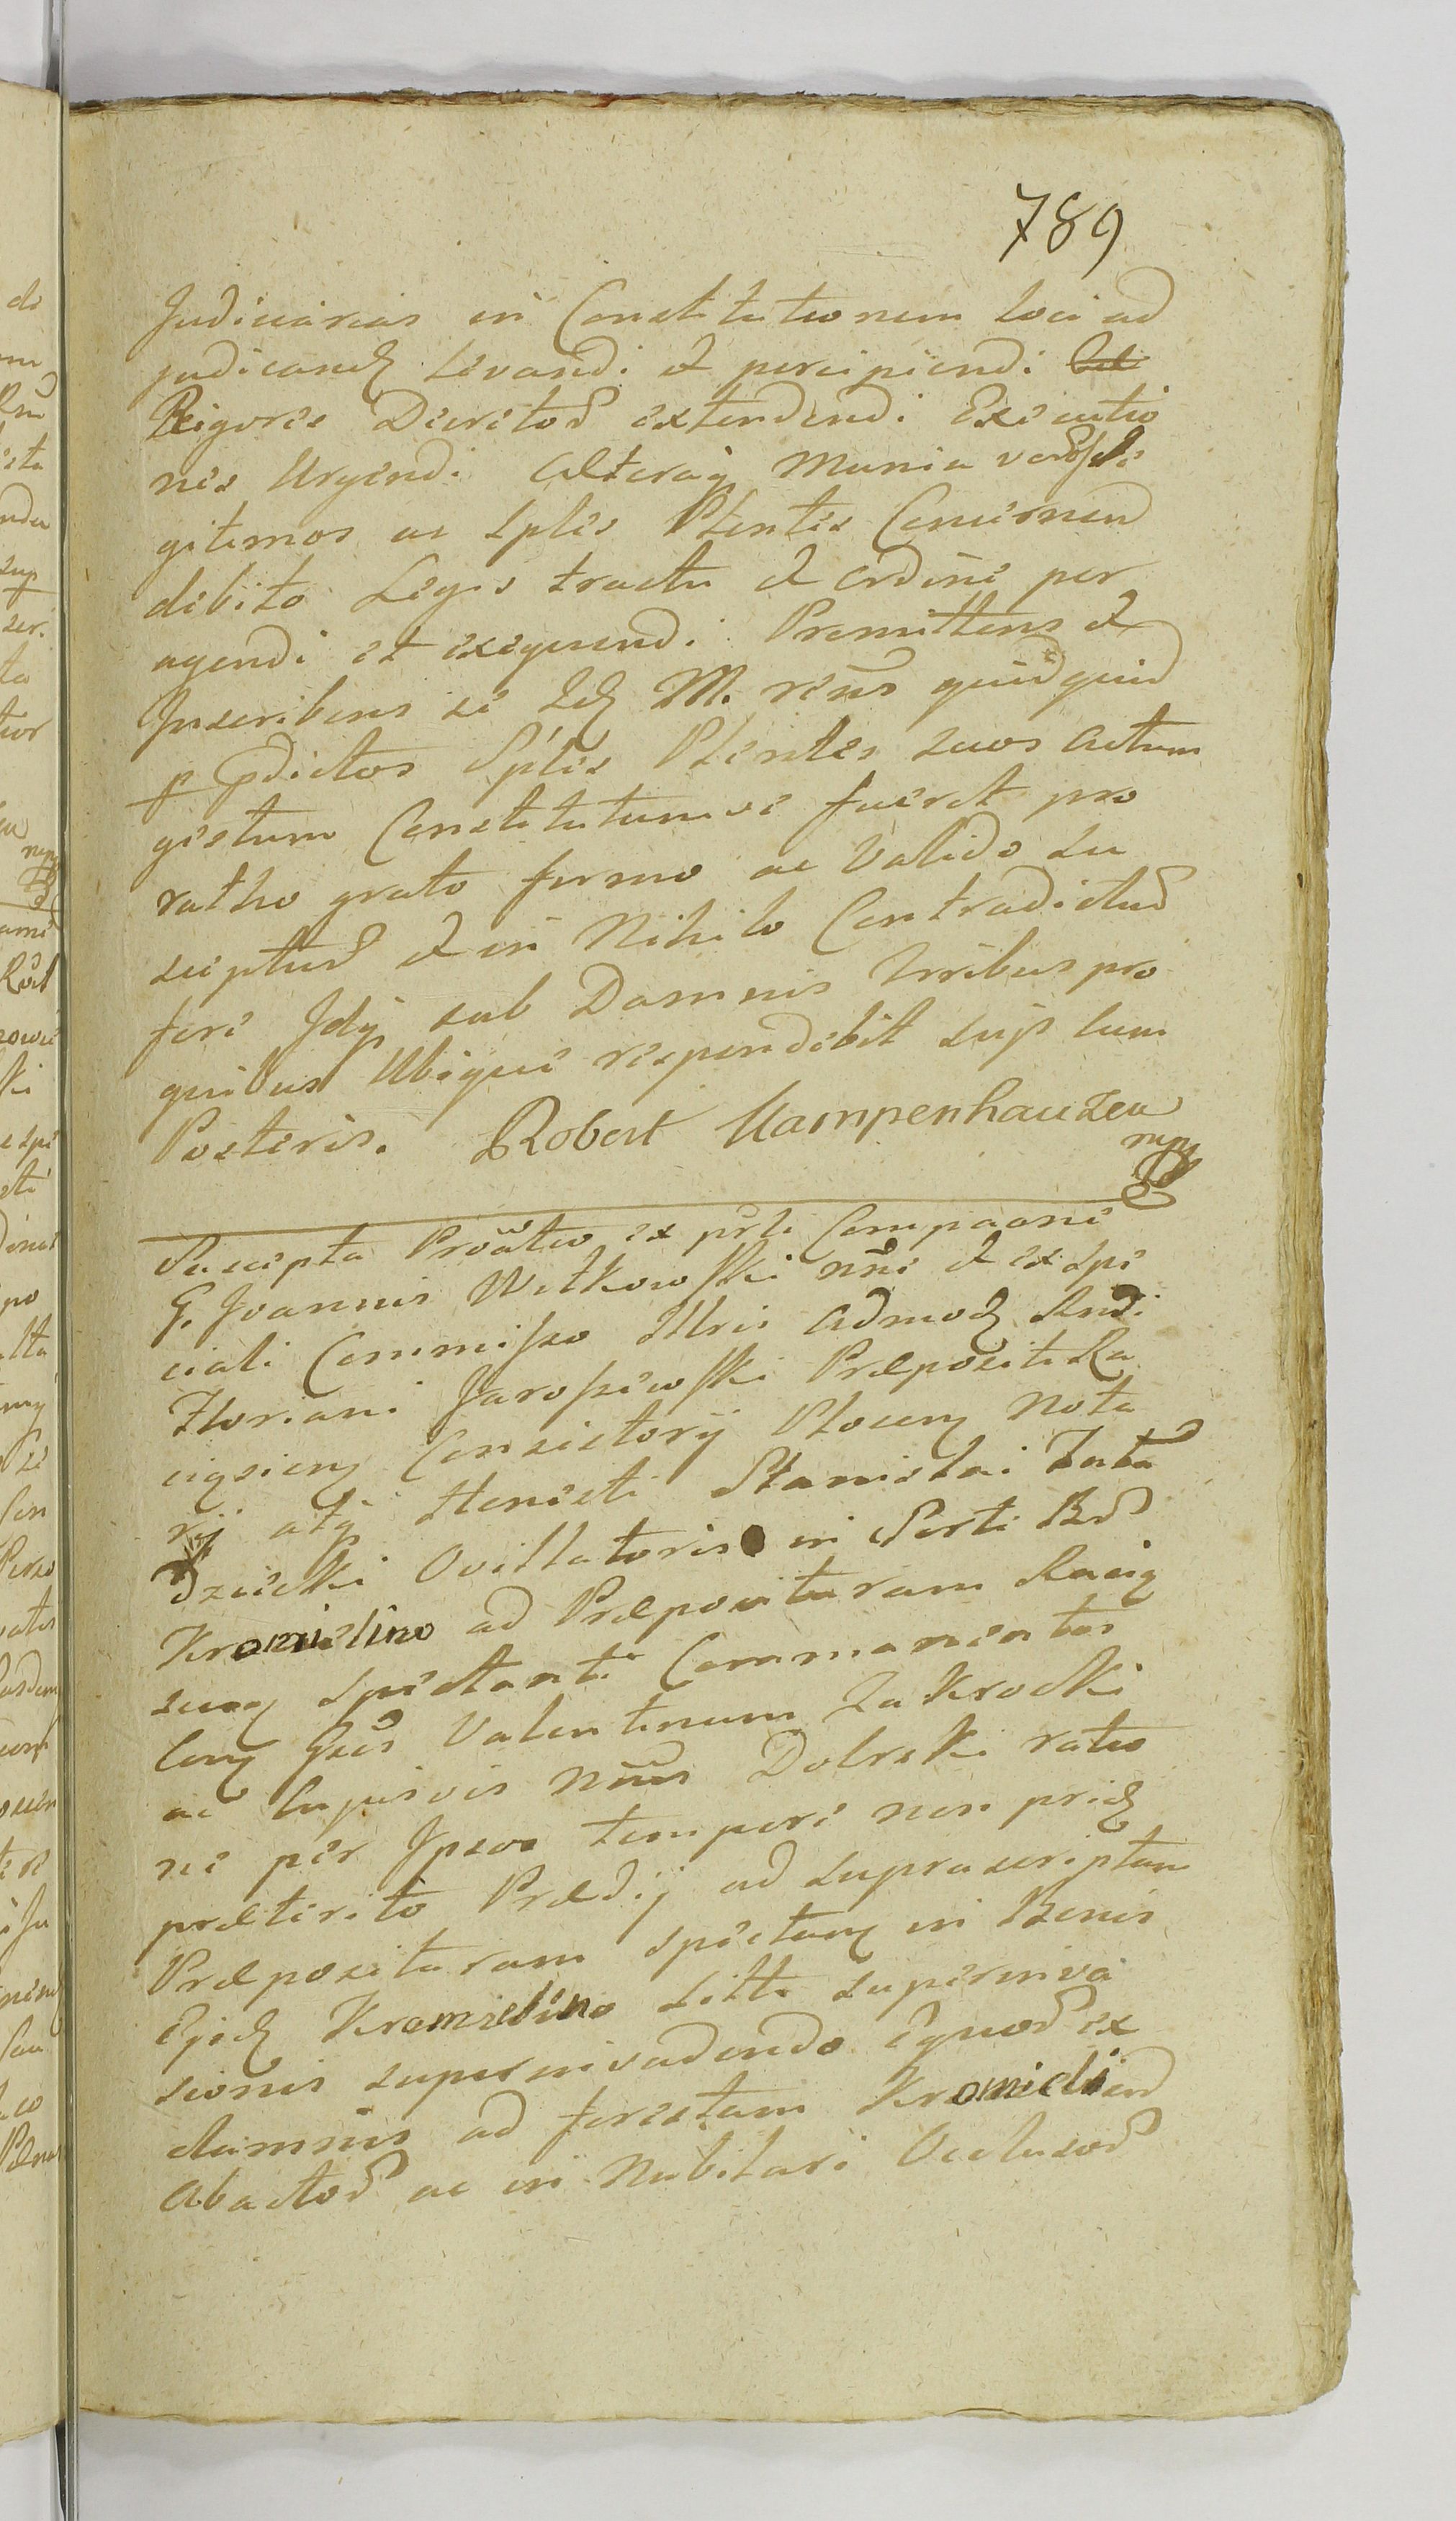 789
Judiciarias in Constitutionem loci ad
judicand levandi et percipiendi
Reigoris Decretos extendendi Executio
nes Urgendi Alteraq Munia veros Le
gitimos ac Sples Plentes Concernend
debito Legis tractu et ordine per
agendi et exequendi. Promittens et
Inscribens se Id M. rens quidquid
p pdictos Sples Plentes suos actum
gestum Constitutumve fuerit pro
ratho grato firmo ac Valido su
scepturd et in Nihilo Contradictud
fore Idq sub Damnis Irribus pro
quibus Ubique respondebit sup cum
Posteris. Robert Kampenhauzen
mpp
Suscepta Proatio ex prli Compaone
G. Joannis Witkowski nri et ex spe
ciali Commisso Illris admod Rndi
Floriani Jaroszewski Præpositi Ra
ciąsien Consistorij Plocen Nota
rij atq Honesti Stanislai Zata
dziecki Ovillatoris in Sorte Bd
Kromielino ad Præposituram Racią
sien spectante Commanentis
Con Gsos Valentinum Zakrocki
ac cujusvis nmis Dobrski ratio
ne per Ipsos tempore non prid
præterito Prædij ad suprascriptam
Præposituram spectan in Bonis
Ejsd Kromielino siti superinva
sionis superinvadendo Equod ex
damnis ad forestam Kromielind
Abactod ac in Nubilari Occlusod